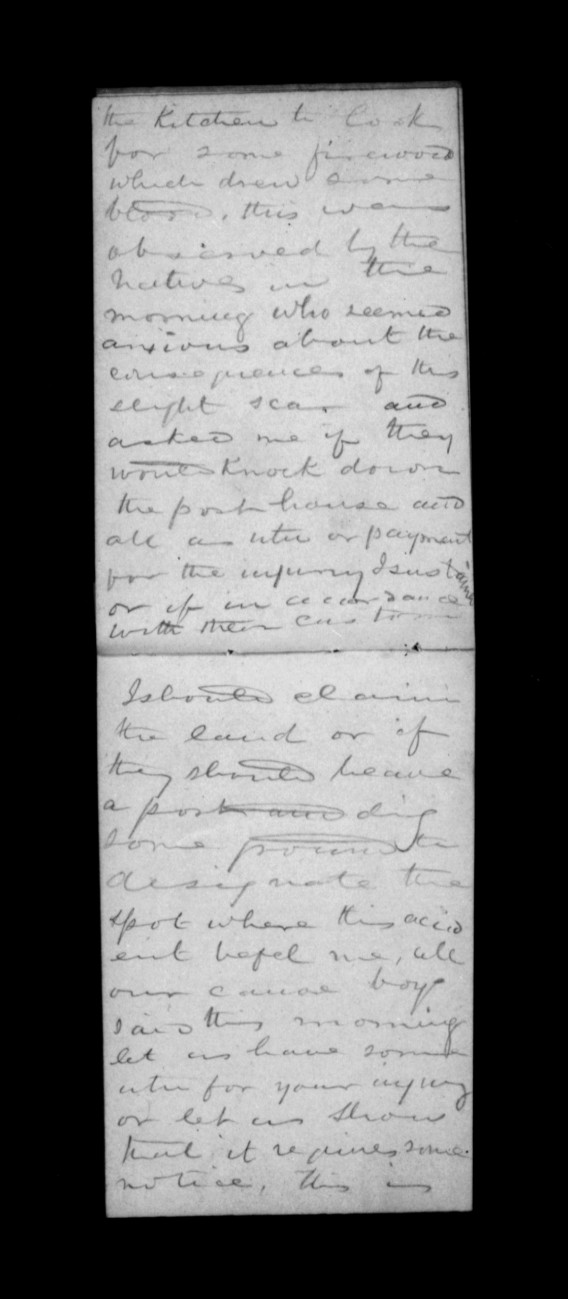 the Kitchen to look
for some firewood
which drew some
blood, this was
observed by the
natives in the
morning who seemed
anxious about the
consequences of this
slight scar and
asked me if they
would Knock down
the post house and
all as utu or payment
for the injury I sustained
or if in accordance
with their custom
I should claim
the land or if
they should leave
a post and dig
some ground to
designate the
spot where this accid
ent befel me, all
our canoe boys
said this morning
let us have some
utu for your injury
or let us show
that it requires some
notice, this is